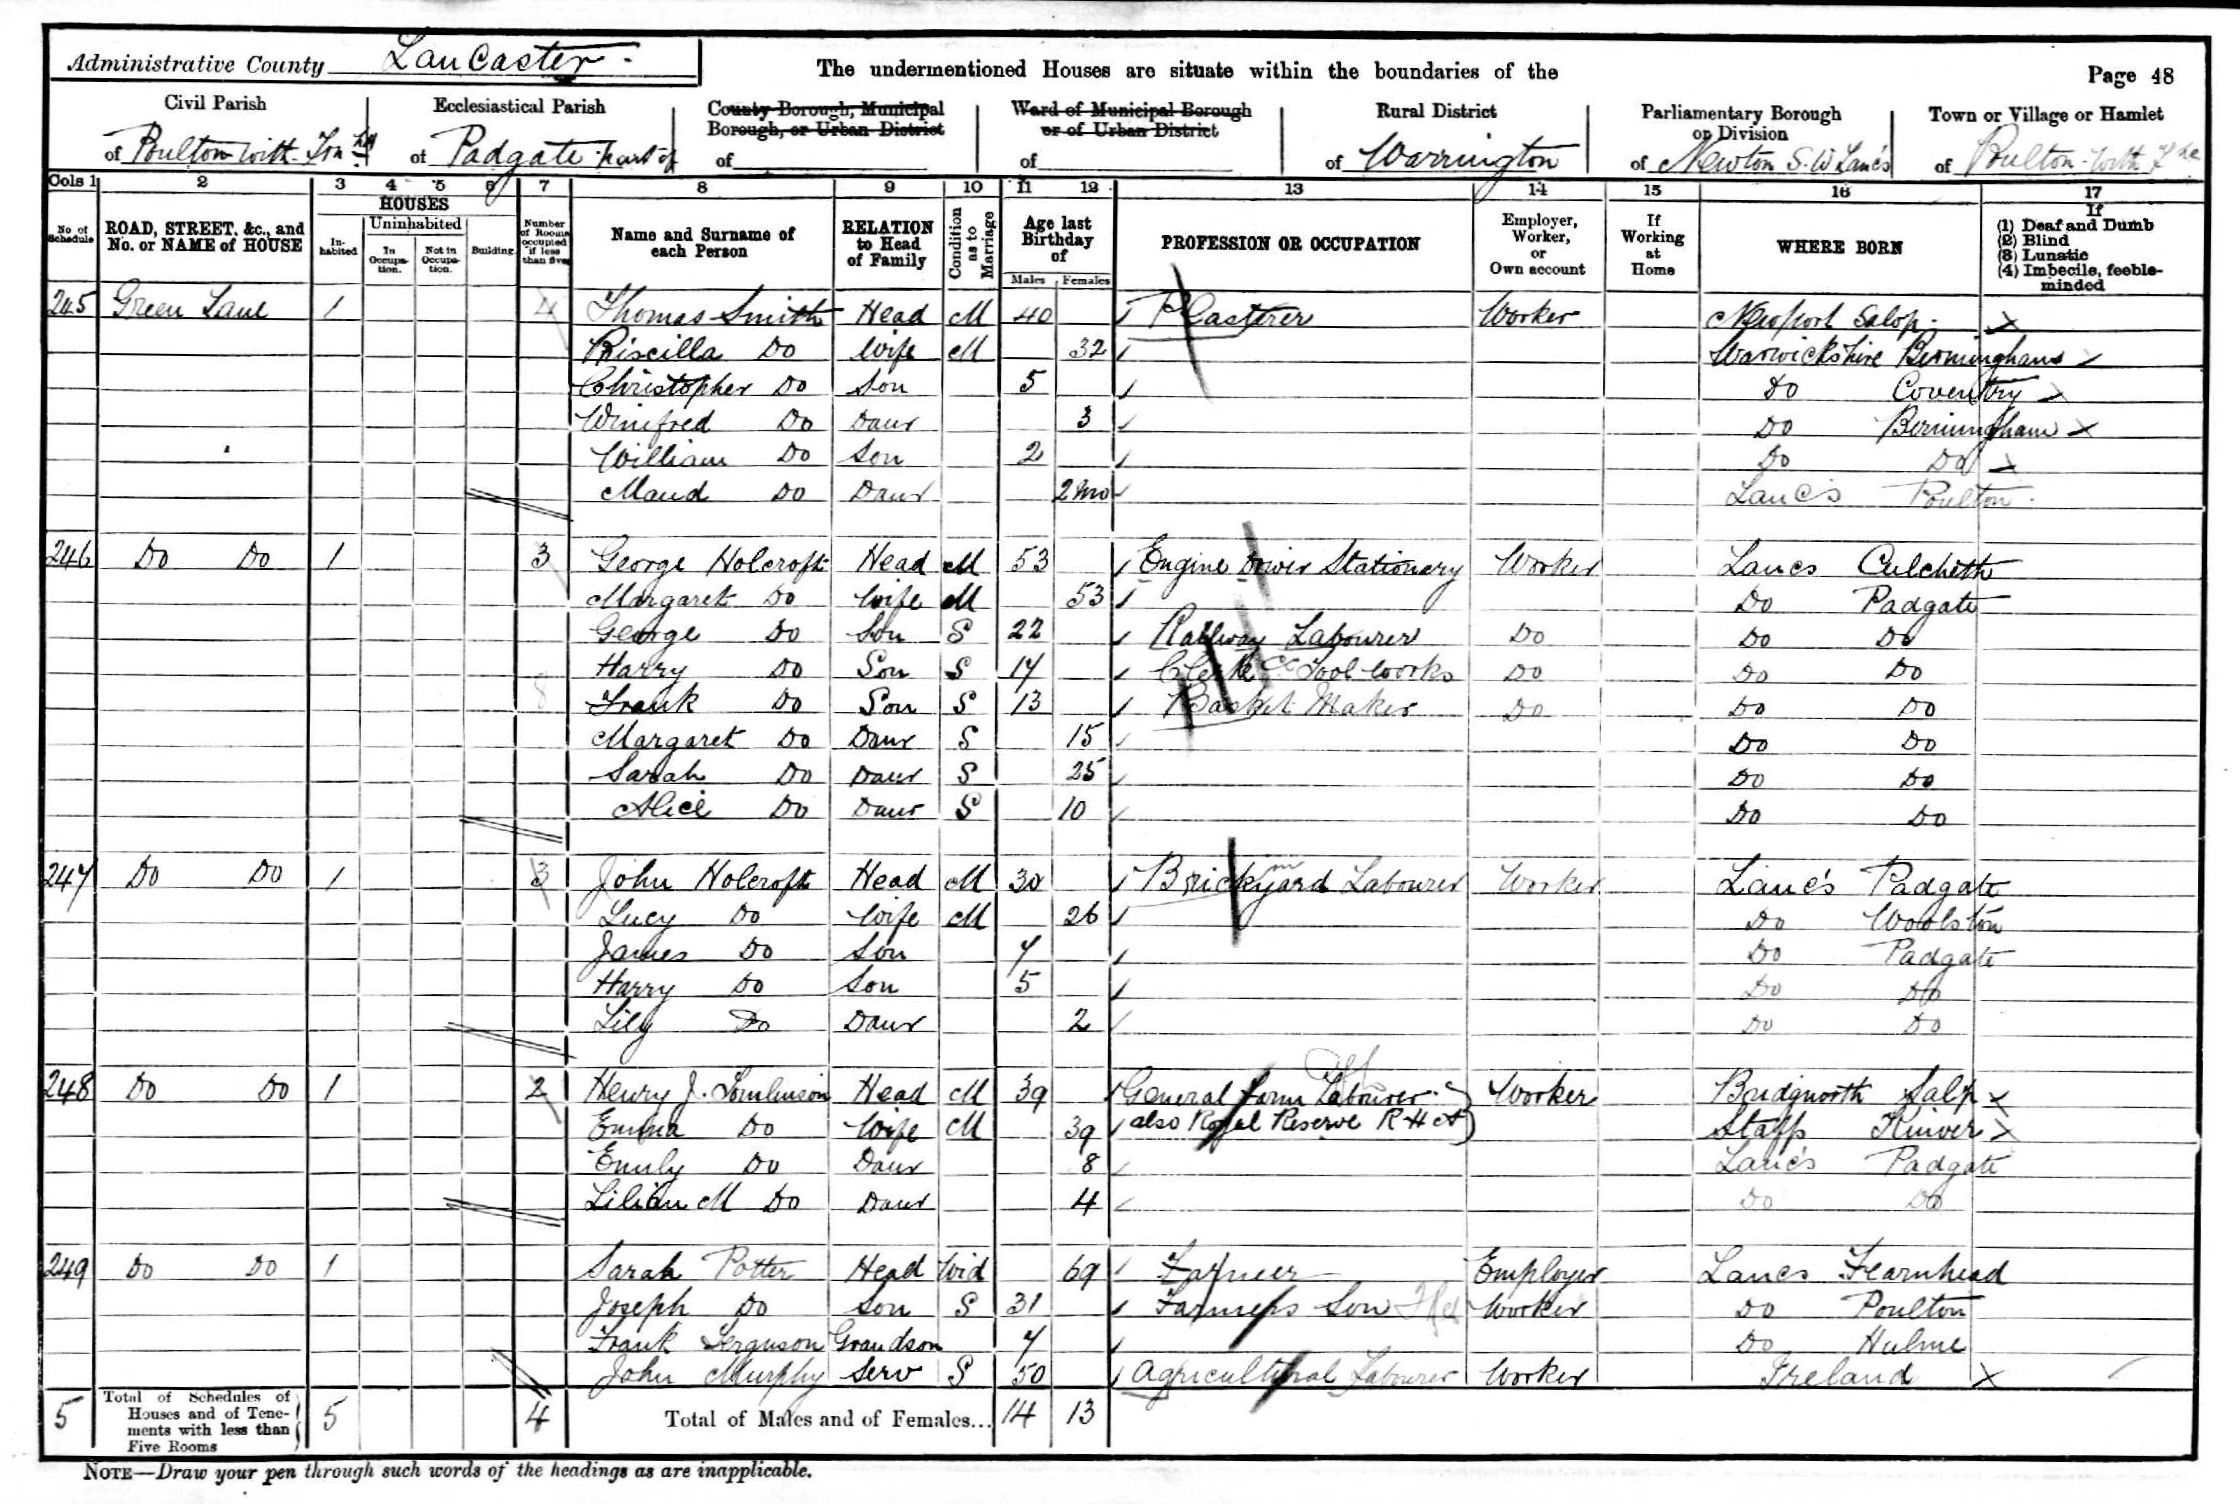 Administrative County Lancaster
The undermentioned Houses are situate within the boundaries of the
Page 48
Civil Parish
of Poulton with
Ecclesiastical Parish
of Padgate part of
County Borough, Municipal Borough, or Urban District
of
Ward of Municipal Borough or of Urban District
of
Rural District
of Warrington
Parliamentary Borough or Division
of Newton S.W Lancs
Town or Village or Hamlet
of Poulton with
Cols 1 2 3 4 5 6 7 8 9 10 11 12 13 14 15 16 17
No of Schedule
ROAD, STREET, &c., and No. or NAME of HOUSE
HOUSES
Inhabited
Uninhabited
In Occupation.
Not in Occupation.
Building
Number of Rooms occupied if less than five
Name and Surname of each Person
RELATION to Head of Family
Condition as to Marriage
Age last Birthday of
Males Females
PROFESSION OR OCCUPATION
Employer, Worker, or Own account
If Working at Home
WHERE BORN
If
(1) Deaf and Dumb
(2) Blind
(3) Lunatic
(4) Imbecile, feeble-minded
245 Green Lane 1 4 Thomas Smith Head M 40 Plasterer Worker Newport Salop
Priscilla Do Wife M 32 Warwickshire Birmingham
Christopher Do Son 5 Do Coventry
Winifred Do Daur 3 Do Birmingham
William Do Son 2 Do Do
Maud Do Daur 2 mo Lancs Poulton
246 Do Do 1 3 George Holcroft Head M 53 Engine Driver Stationery Worker Lancs Culcheth
Margaret Do Wife M 53 Do Padgate
George Do Son S 22 Railway Labourer Do Do Do
Harry Do Son S 17 Clerk Tool Works Do Do Do
Frank Do Son S 13 Basket Maker Do Do Do
Margaret Do Daur S 15 Do Do
Sarah Do Daur S 25 Do Do
Alice Do Daur S 10 Do Do
247 Do Do 1 3 John Holcroft Head M 30 Brickyard Labourer Worker Lancs Padgate
Lucy Do Wife M 26 Do Woolston
James Do Son 7 Do Padgate
Harry Do Son 5 Do Do
Lily Do Daur 2 Do Do
248 Do Do 1 2 Henry J. Tomlinson Head M 39 General Farm Labourer Worker Bridgnorth Salp
Emma Do Wife M 39 also Royal Reserve R H A Staffs Kinver
Emily Do Daur 8 Lancs Padgate
Lilian M Do Daur 4 Do Do
249 Do Do 1 Sarah Potter Head Wid 69 Farmer Employer Lancs Fearnhead
Joseph Do Son S 31 Farmers Son Worker Do Poulton
Frank Ferguson Grandson 7 Do Hulme
John Murphy Serv S 50 Agricultural Labourer Worker Ireland
5 Total of Schedules of Houses and of Tenements with less than Five Rooms 5 4 Total of Males and of Females... 14 13
NOTE—Draw your pen through such words of the headings as are inapplicable.